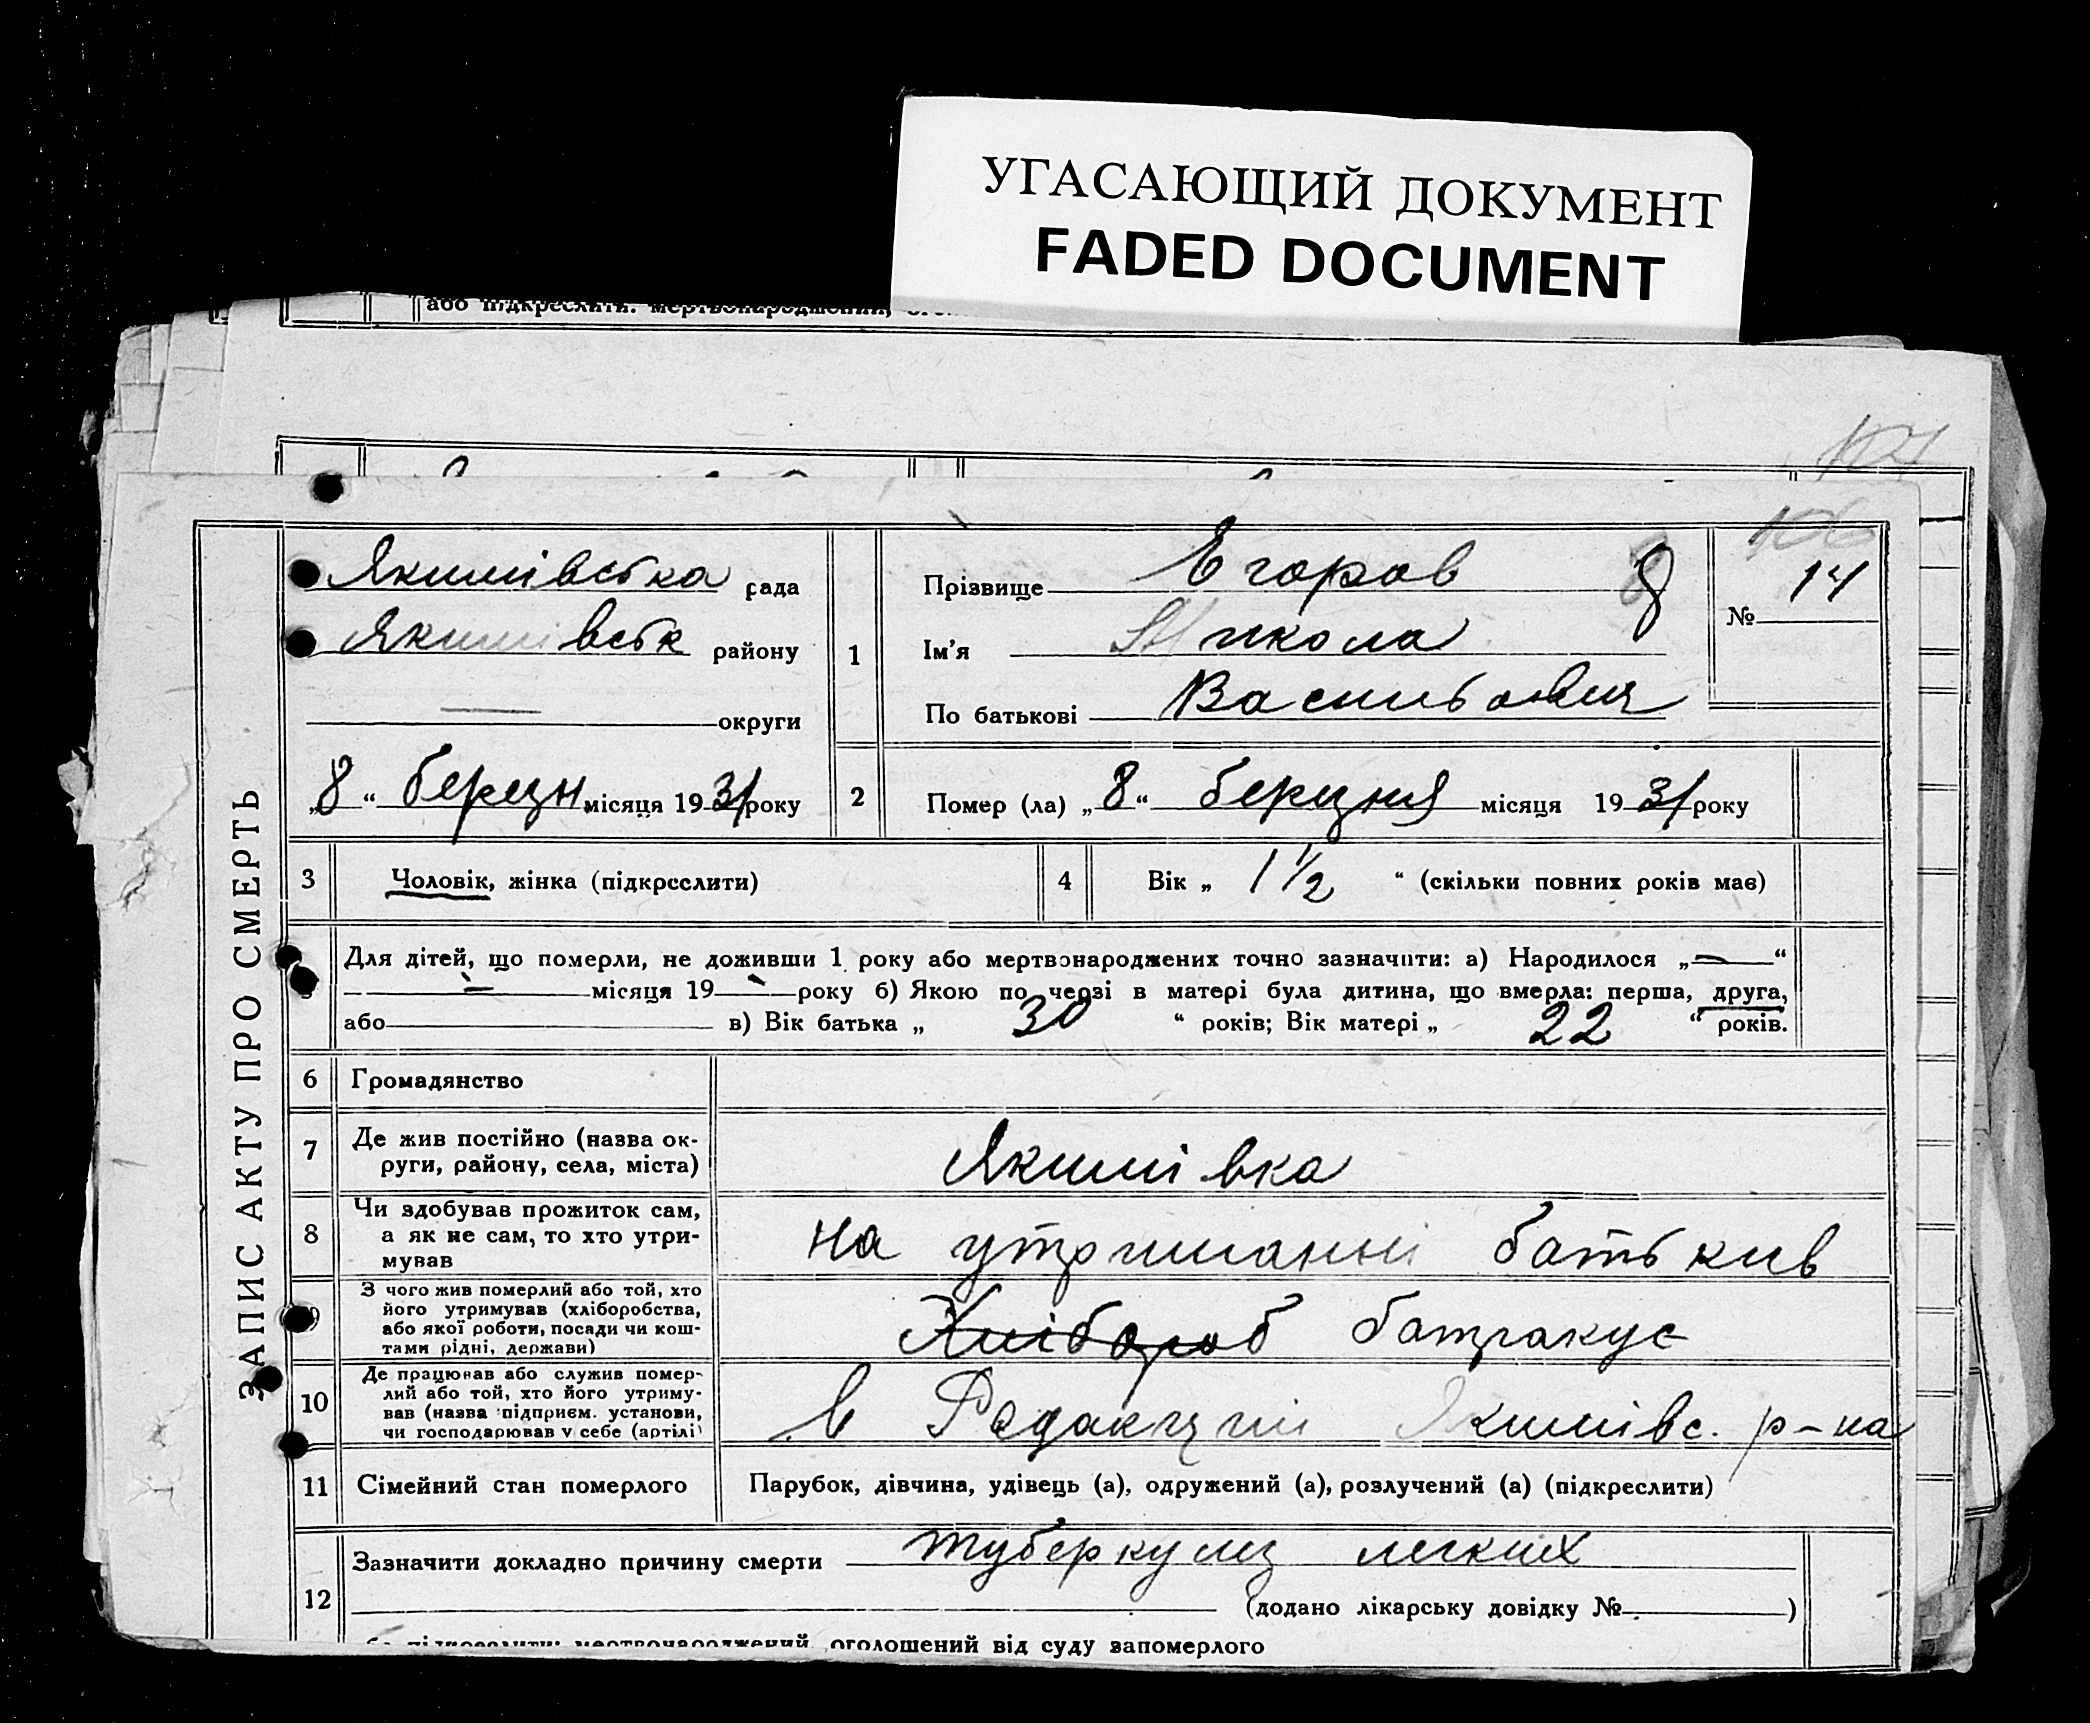 УГАСАЮЩИЙ ДОКУМЕНТ
FADED DOCUMENT
або підкреслити: мертвонароджений,
107
106
ЗАПИС АКТУ ПРО СМЕРТЬ
Якимівська рада
Якимівськ району
округи
„8“ березн місяця 1931 року
1
Прізвище Егоров 8
Ім'я Микола
По батькові Васильович
№ 14
2
Помер (ла) „8“ березня місяця 1931 року
3 Чоловік, жінка (підкреслити)
4 Вік „ 1 1/2 “ (скільки повних років має)
Для дітей, що померли, не доживши 1 року або мертвонароджених точно зазначити: а) Народилося „—“
— місяця 19— року б) Якою по черзі в матері була дитина, що вмерла: перша, друга,
або в) Вік батька „ 30 “ років; Вік матері „ 22 “ років.
6 Громадянство
7 Де жив постійно (назва ок-
руги, району, села, міста)
Якимівка
8 Чи здобував прожиток сам,
а як не сам, то хто утри-
мував
на утриманні батьків
9 З чого жив померлий або той, хто
його утримував (хліборобства,
або якої роботи, посади чи кош-
тами рідні, держави)
Хлібороб батракує
10 Де працював або служив помер-
лий або той, хто його утриму-
вав (назва підприєм. установи,
чи господарював у себе (артілі)
в Редакциї Якимівс. р-на
11 Сімейний стан померлого
Парубок, дівчина, удівець (а), одружений (а), розлучений (а) (підкреслити)
12 Зазначити докладно причину смерти туберкулиз легких
(додано лікарську довідку № )
підкреслити: мертвонароджений, оголошений від суду запомерлого